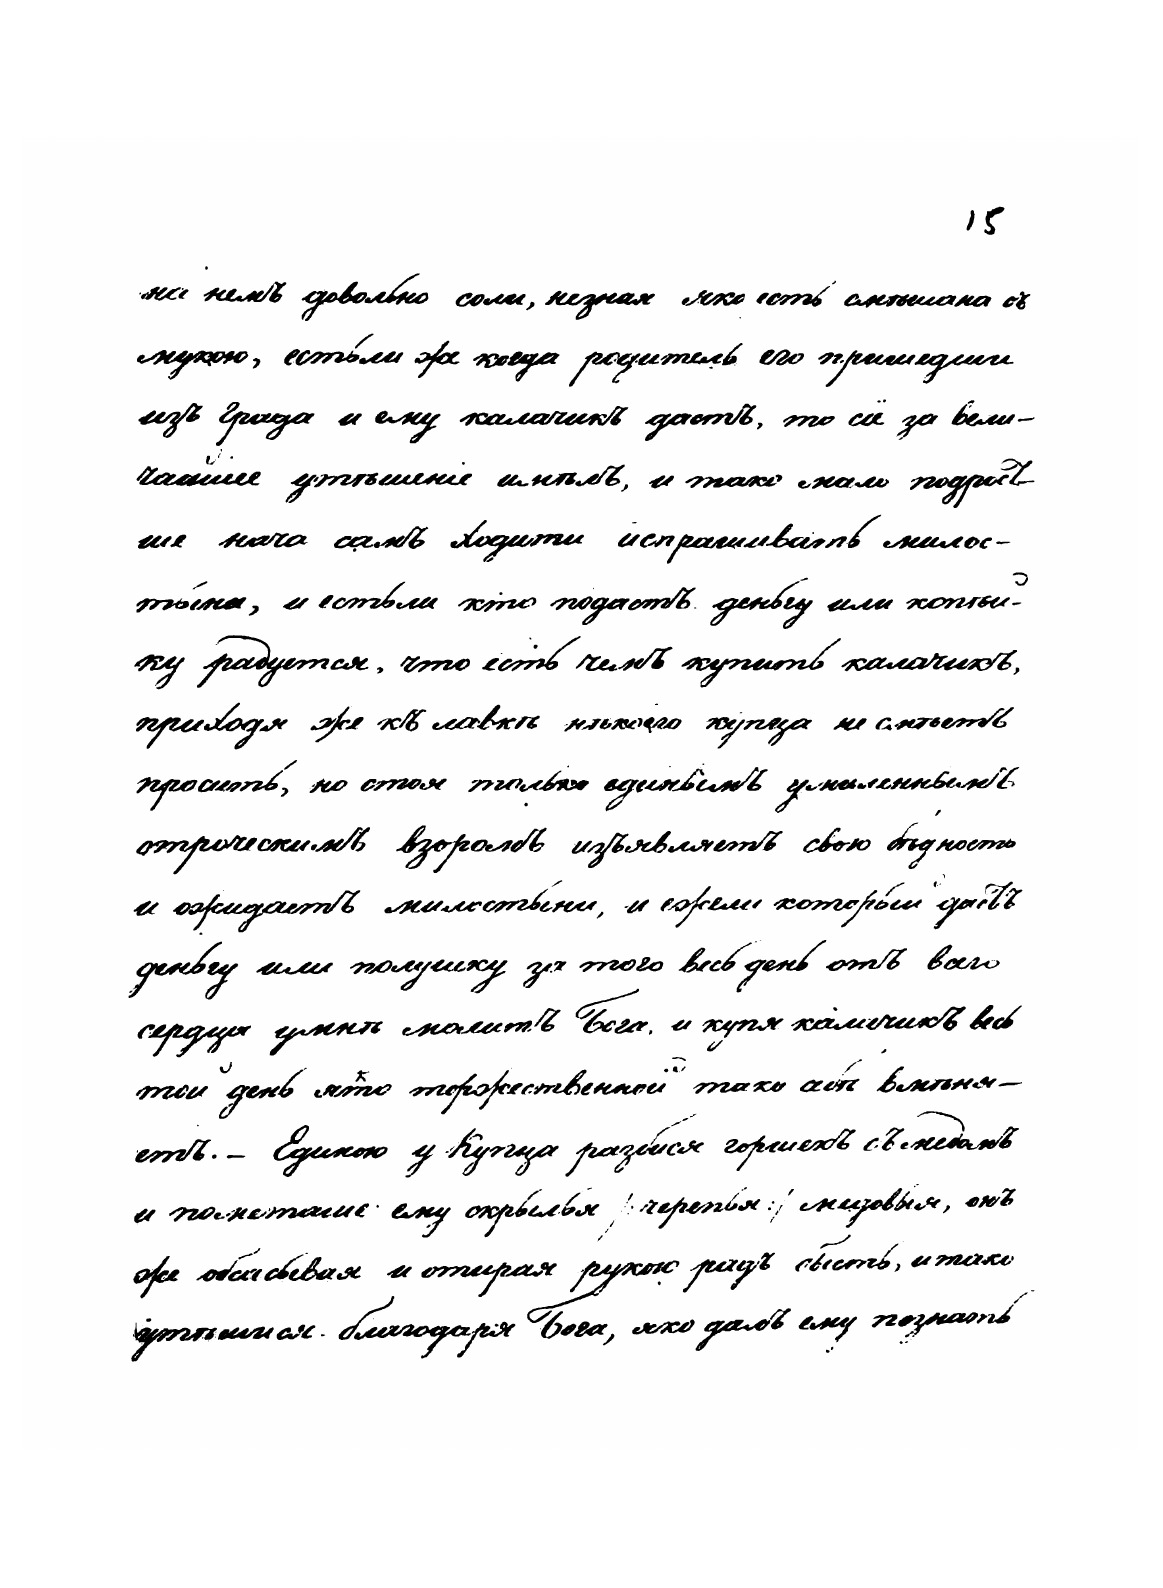 15
на немъ довольно соли, незная яко есть смѣшана съ
мукою, естьли же когда родитель его пришедши
изъ града и ему калачикъ дастъ, то сіе за вели-
чайшее утѣшеніе имѣлъ, и тако мало подрост-
ше нача самъ ходити испрашивать милос-
тыни, и естьли кто подастъ деньгу или копѣй-
ку радуется, что есть чемъ купить калачикъ,
приходя же къ лавкѣ нѣкоего купца не смѣетъ
просить, но стоя только единымъ умиленнымъ
отроческимъ взоромъ изъявляетъ свою бѣдность
и ожидаетъ милостыни, и ежели который дастъ
деньгу или полушку за того весь день отъ всего
сердца умнѣ молитъ Бога. и купя калачикъ весь
той день яко торжественной тако абы вмѣня-
етъ. – Единою у Купца разбися горшекъ съ медомъ
и пометаше ему скрылья /: черепья :/ медовыя, онъ
же обсасывая и отирая рукою радъ бысть, и тако
утѣшися благодаря Бога, яко далъ ему познать